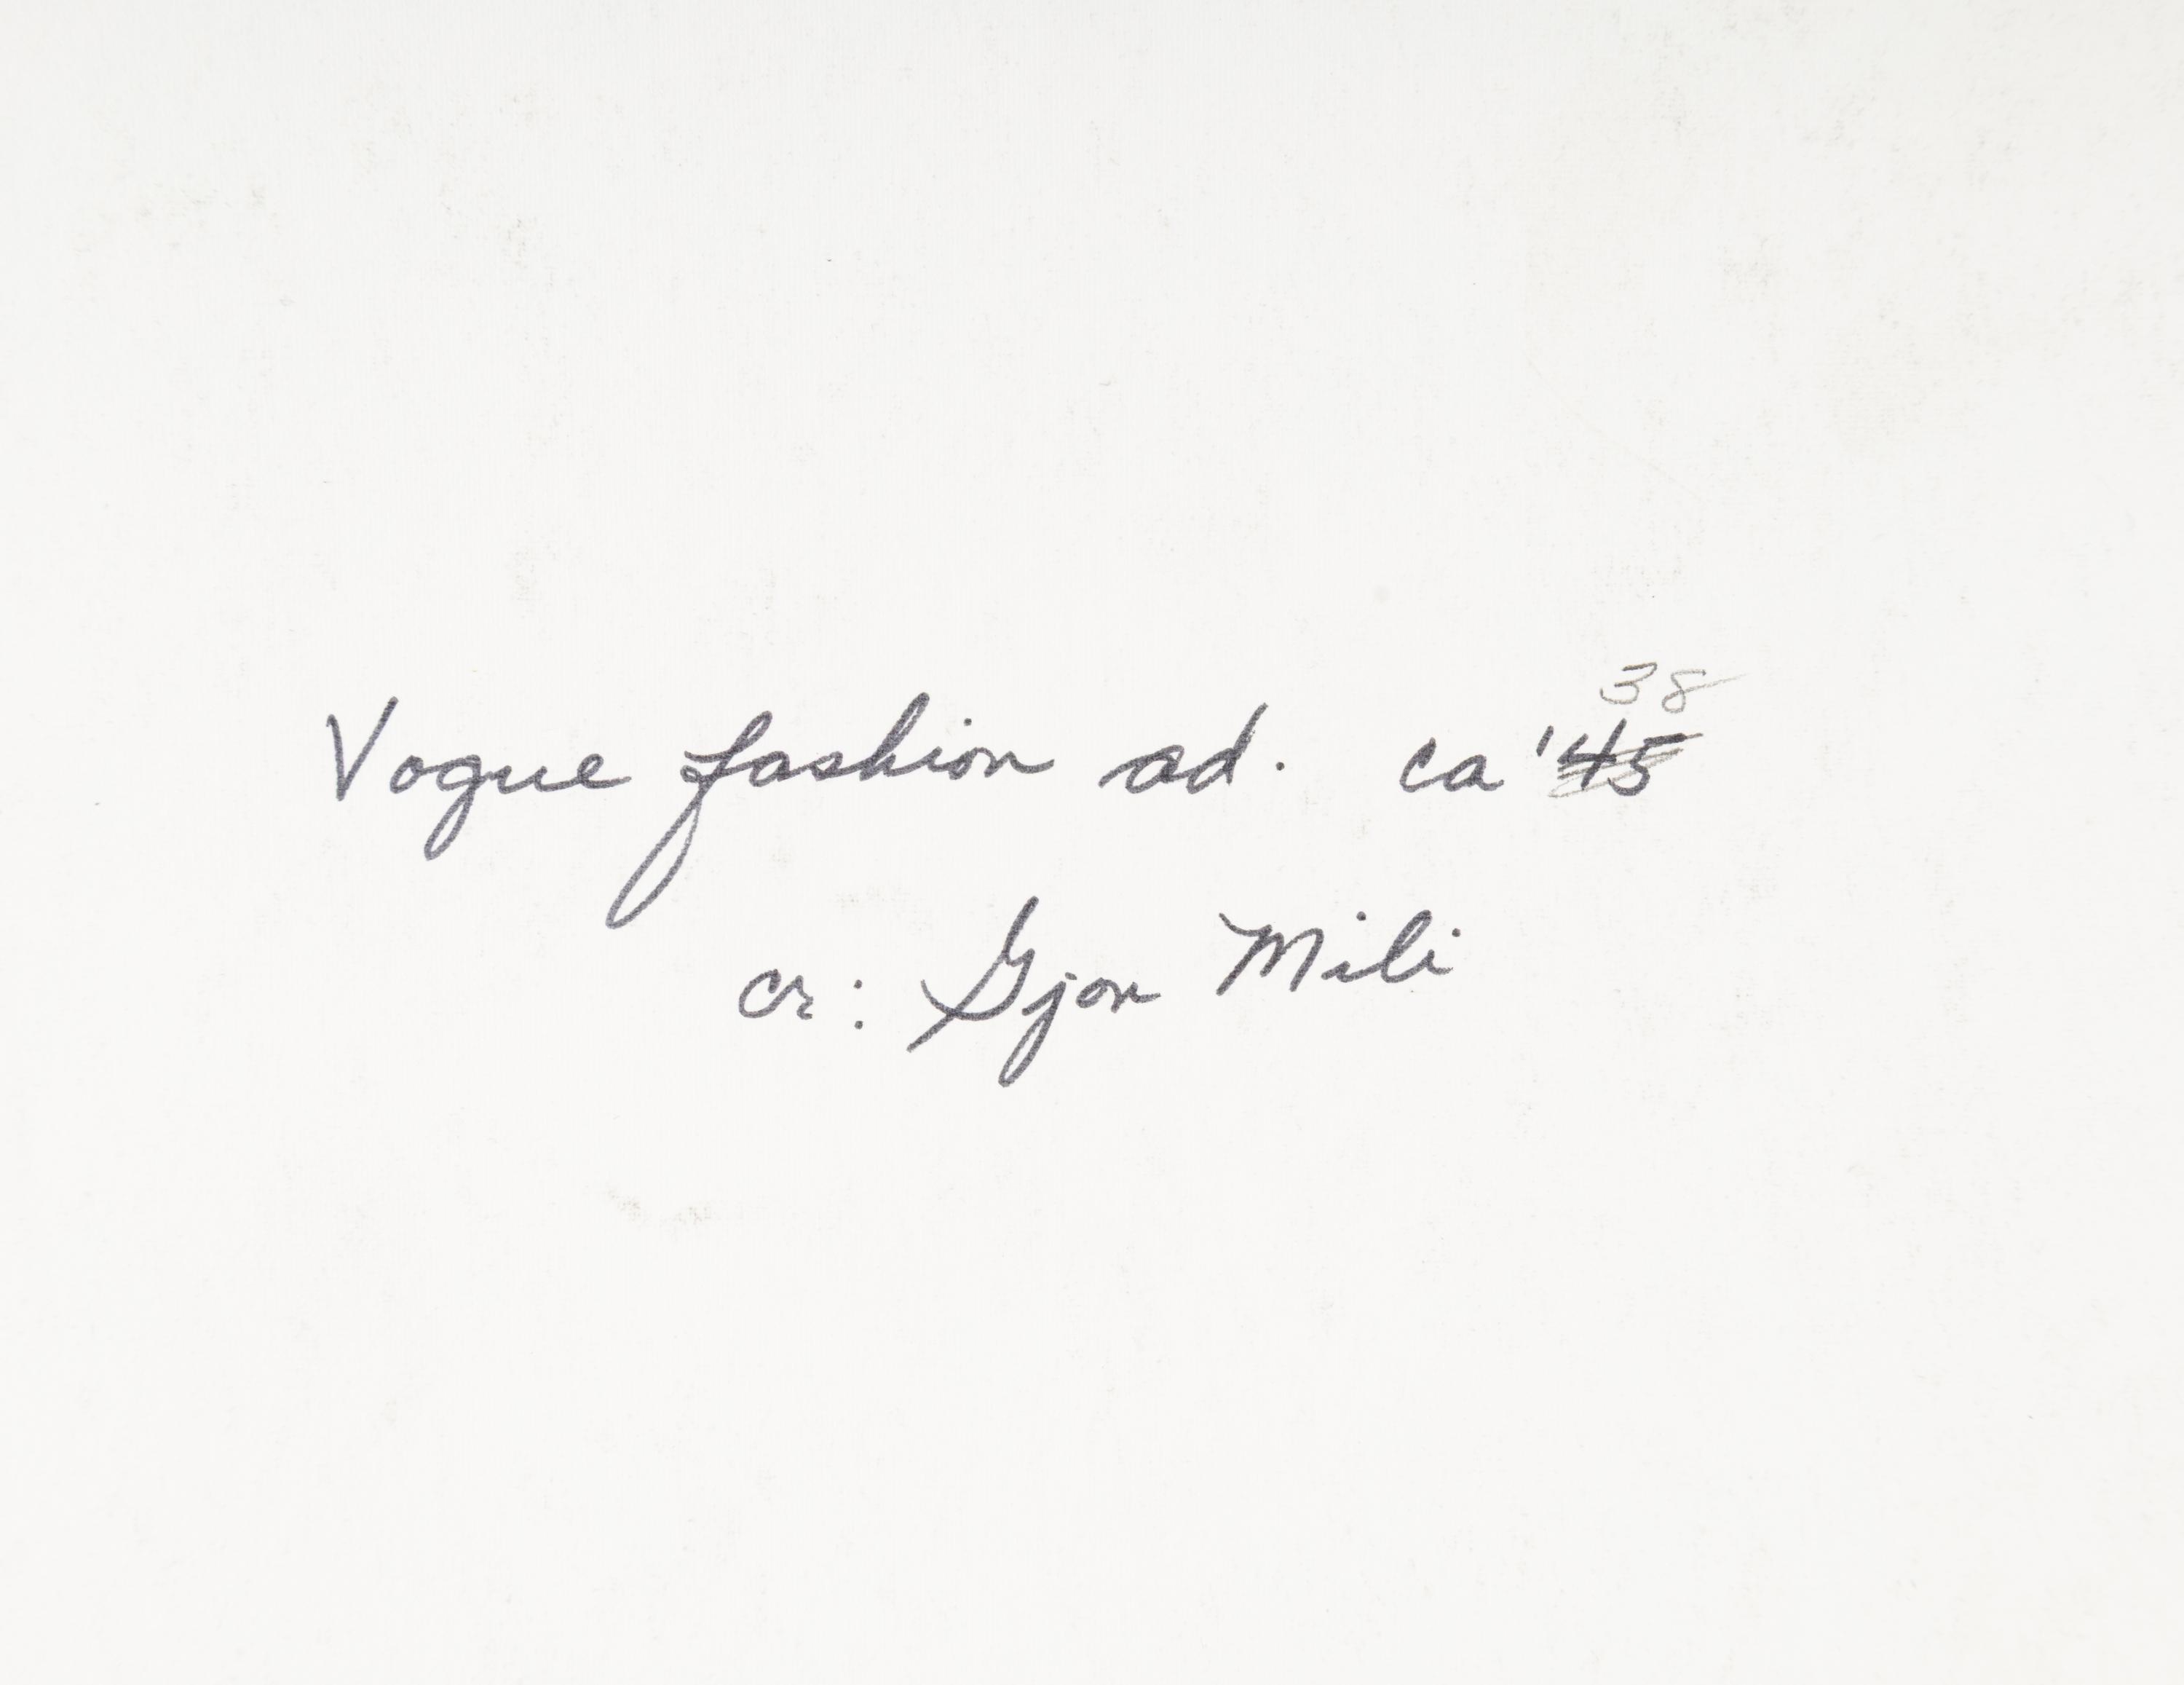 38
Vogue fashion ad. ca '45
cr: Gjon Mili